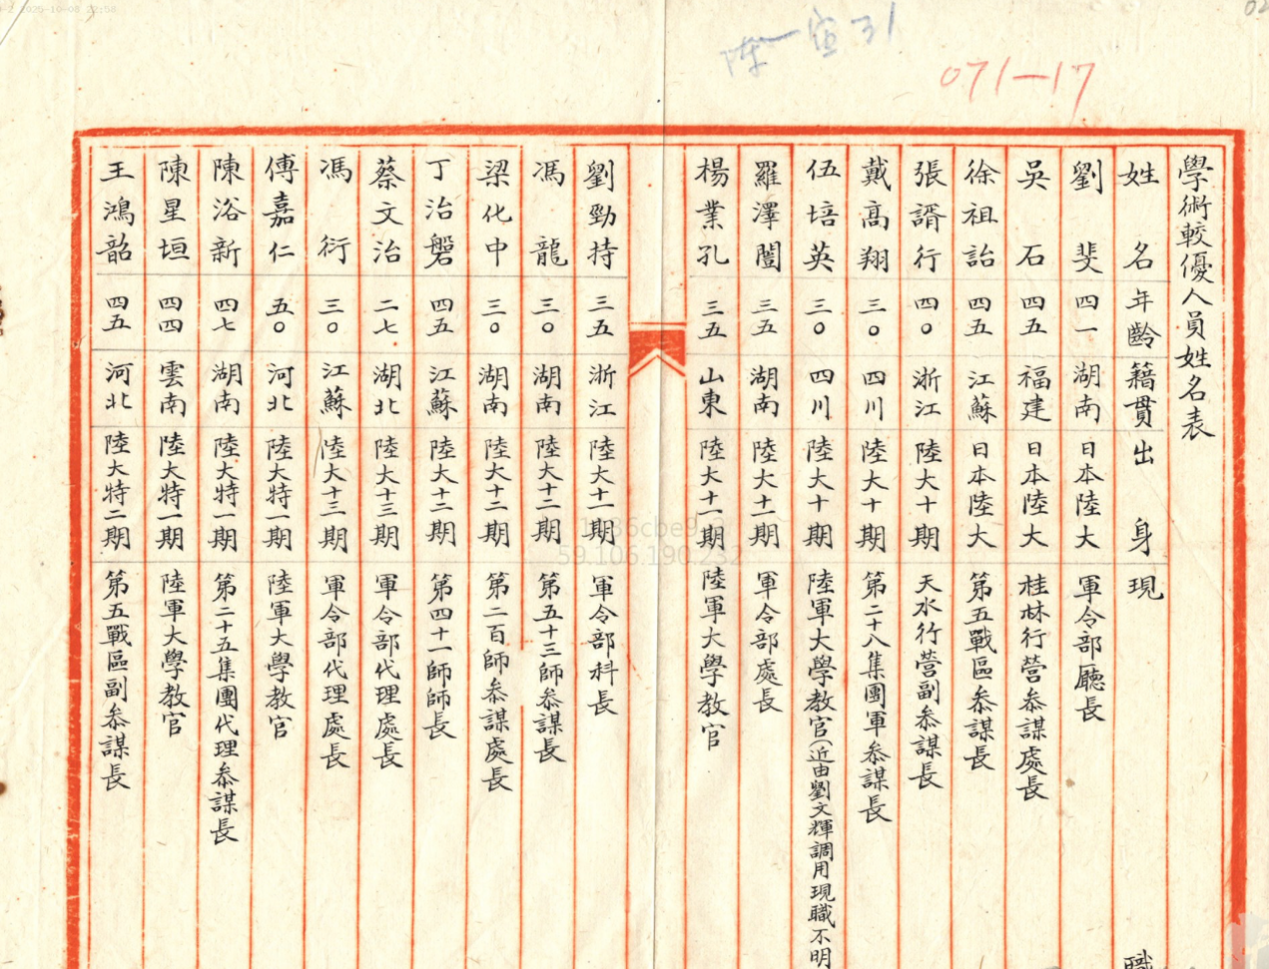 071-17
學術較優人員姓名表
姓名 年齡 籍貫 出身 現職
劉斐 四一 湖南 日本陸大 軍令部廳長
吳石 四五 福建 日本陸大 桂林行營參謀處長
徐祖詒 四五 江蘇 日本陸大 第五戰區參謀長
張諝行 四〇 浙江 陸大十期 天水行營副參謀長
戴高翔 三〇 四川 陸大十期 第二十八集團軍參謀長
伍培英 三〇 四川 陸大十期 陸軍大學教官(近由劉文輝調用現職不明
羅澤闓 三五 湖南 陸大十一期 軍令部處長
楊業孔 三五 山東 陸大十一期 陸軍大學教官
劉勁持 三五 浙江 陸大十一期 軍令部科長
馮龍 三〇 湖南 陸大十二期 第五十三師參謀長
梁化中 三〇 湖南 陸大十二期 第二百師參謀處長
丁治磐 四五 江蘇 陸大十二期 第四十一師師長
蔡文治 二七 湖北 陸大十三期 軍令部代理處長
馮衍 三〇 江蘇 陸大十三期 軍令部代理處長
傅嘉仁 五〇 河北 陸大特一期 陸軍大學教官
陳浴新 四七 湖南 陸大特一期 第二十五集團代理參謀長
陳星垣 四四 雲南 陸大特一期 陸軍大學教官
王鴻韶 四五 河北 陸大特二期 第五戰區副參謀長
59.106.190.232